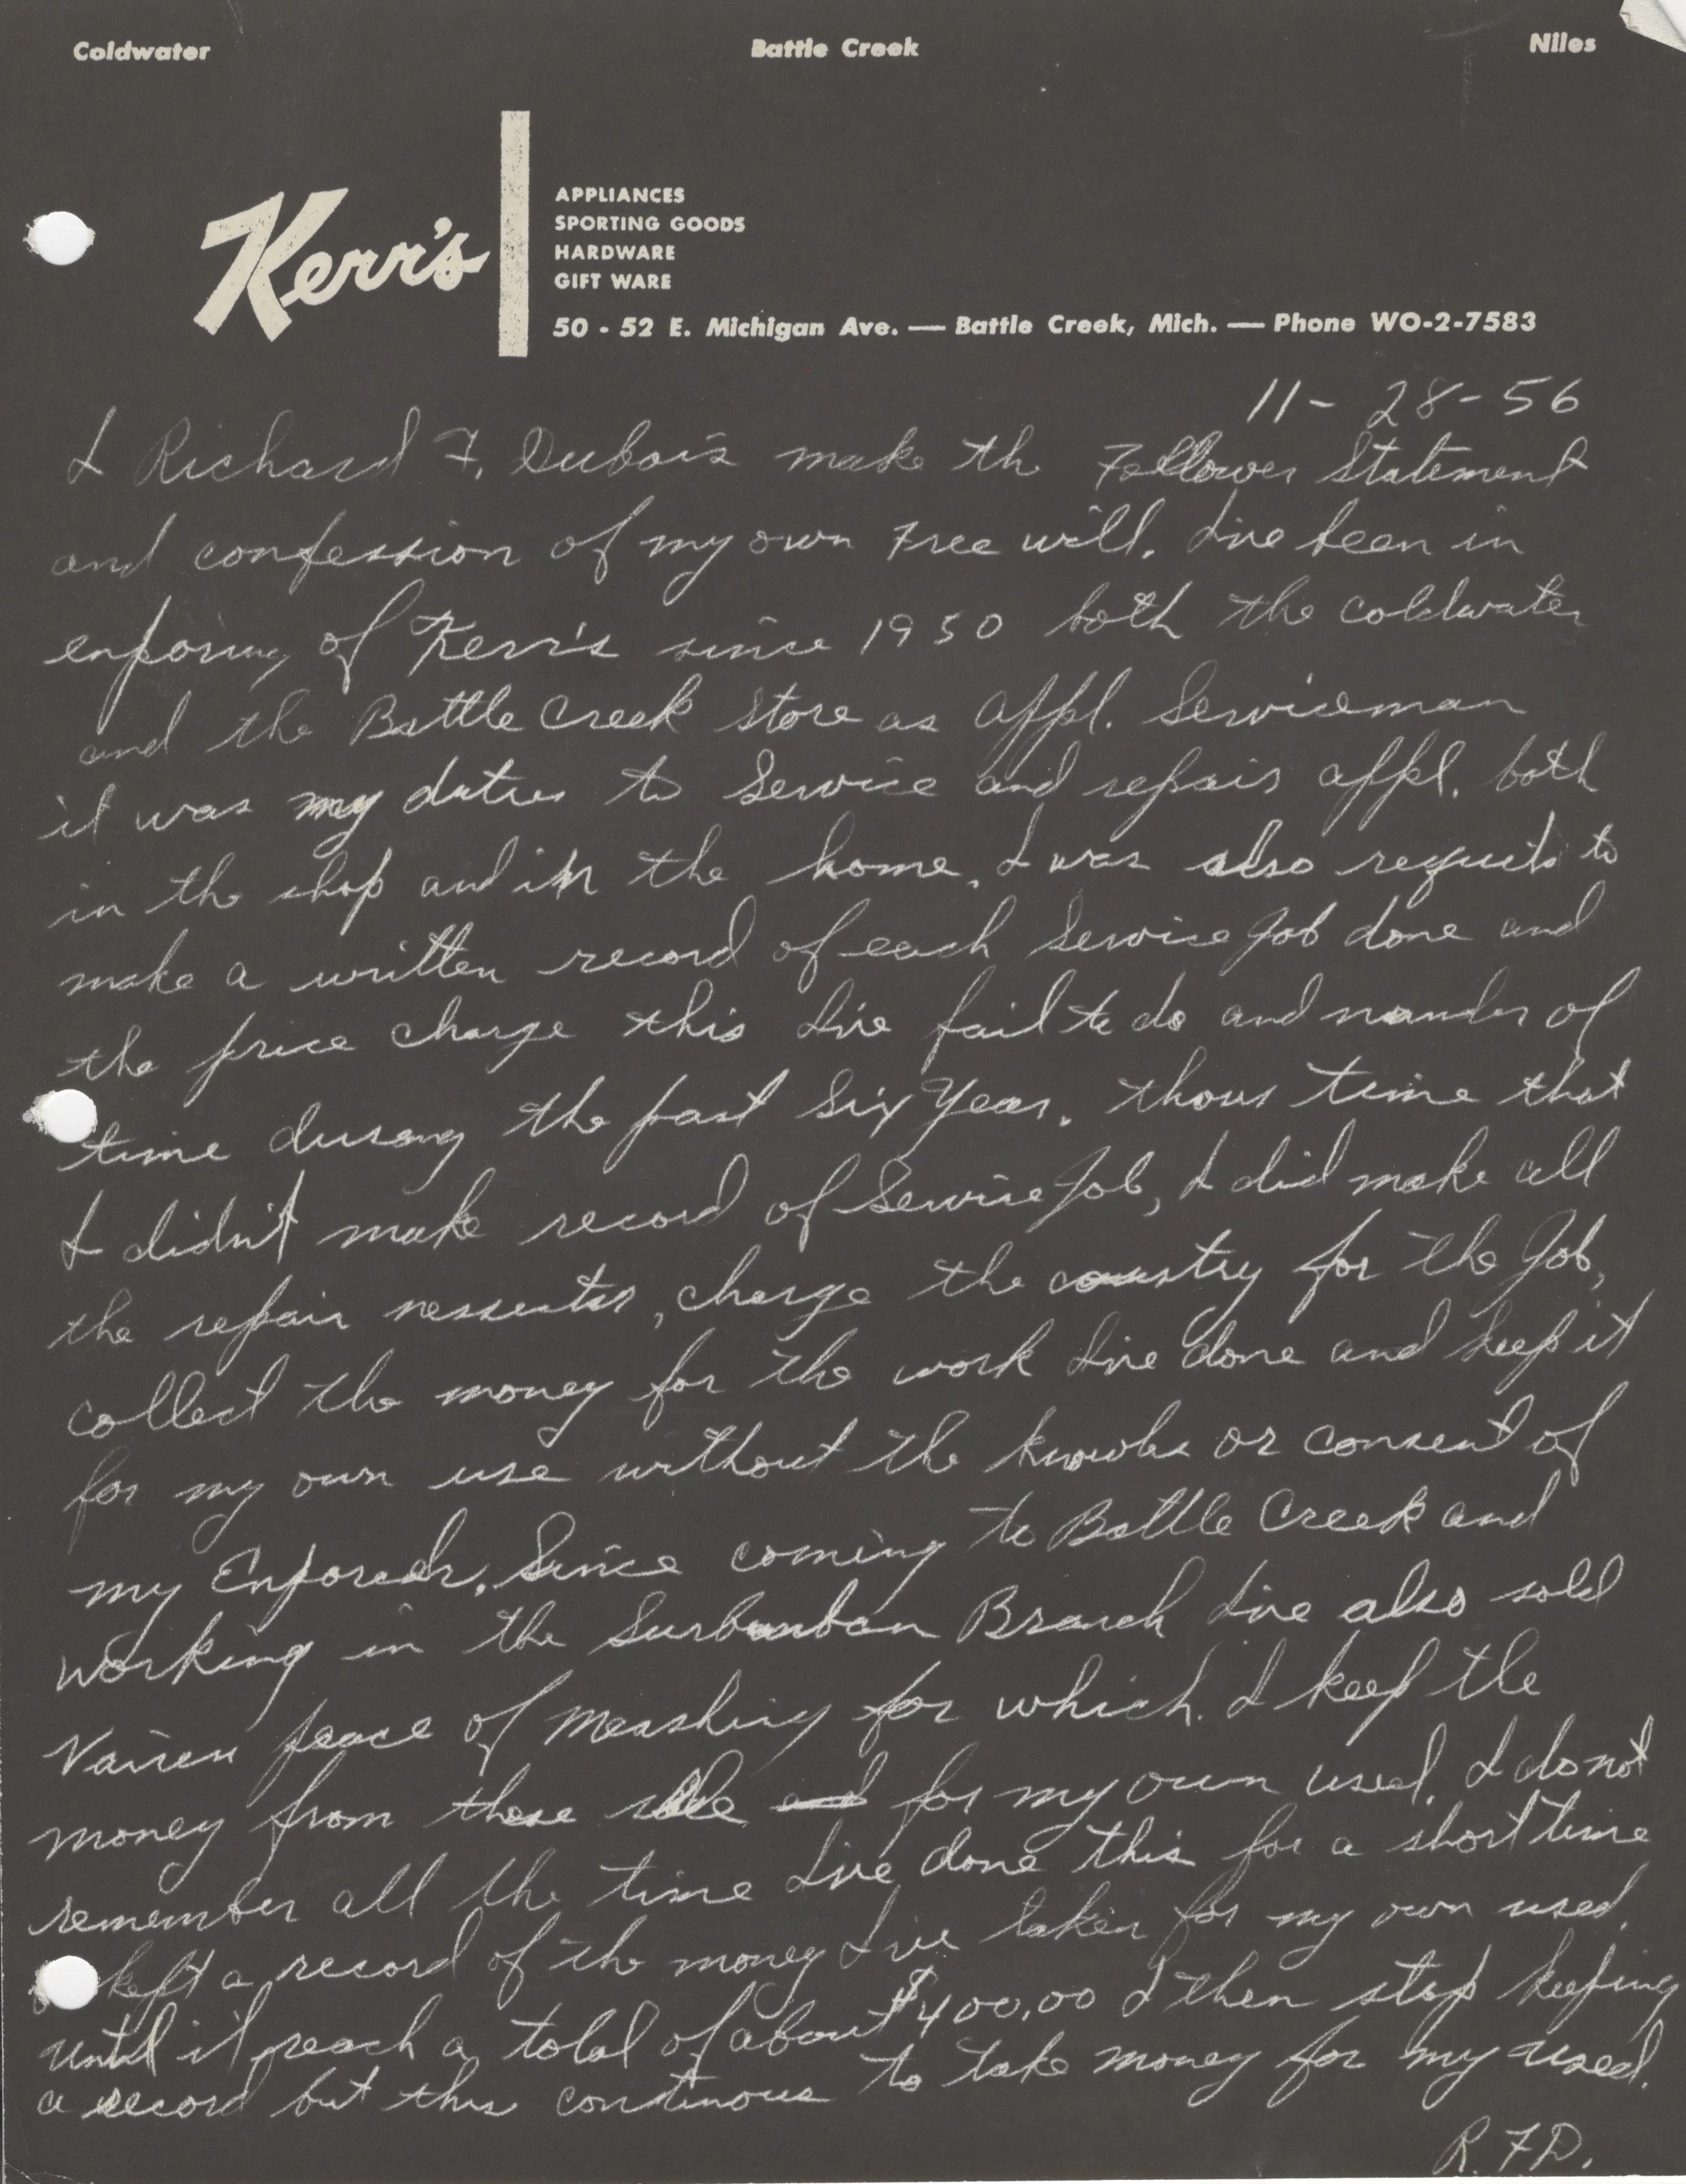 Coldwater Battle Creek Niles
Kerr's
APPLIANCES
SPORTING GOODS
HARDWARE
GIFT WARE
50 - 52 E. Michigan Ave. — Battle Creek, Mich. — Phone WO-2-7583
11-28-56
I Richard F. Dubois make th Follower Statement
and confession of my own Free will. I've been in
of Kerr's since 1950 both the coldwater
and the Battle Creek Store as appl. Serviceman
it was my duties to Service and repair appl. both
in the shop and in the home. I was also to
make a written record of each Service Job done and
the price charge this I've fail to do and of
time the past Six Year. time that
I didn't make record of Service Job, I did make all
the repair , charge the for the Job,
collect the money for the work I've done and keep it
for my own use without the or consent of
my . Since coming to Battle Creek and
working in the Branch I've also sold
peace of for which I keep the
money from these sale and for my own used. I do not
remember all the time I've done this for a short time
I kept a record of the money I've taken for my own used.
until it reach a total of about $400.00 I then stop keeping
a record but this continous to take money for my used.
R.F.D.